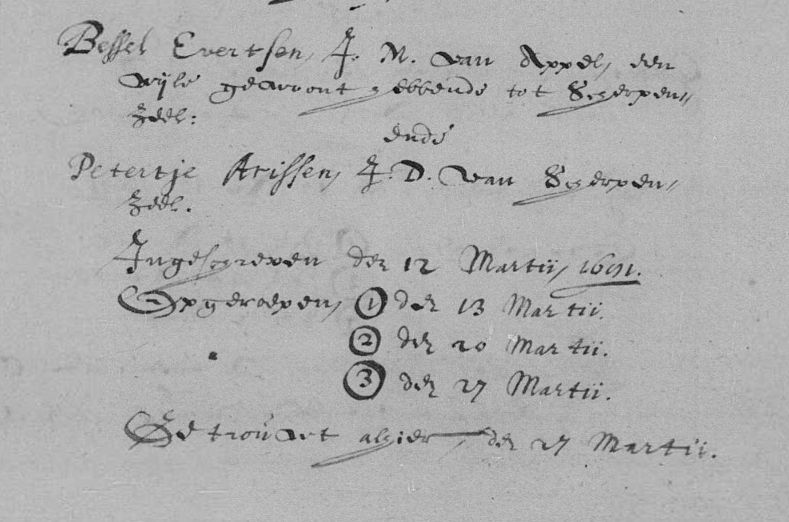 Bessel Evertsen, J. M. van Appel, een
wijle gewoont hebbende tot Scherpen,,
zeel:
ende
Petertje Arissen, J. D. van Scherpen,,
zeel.
Ingeschreven den 12 Martii, 1691.
Opgeroepen, 1 den 13 Martii.
2 den 20 Martii.
3 den 27 Martii.
Getrouwt alhier, den 27 Martii.